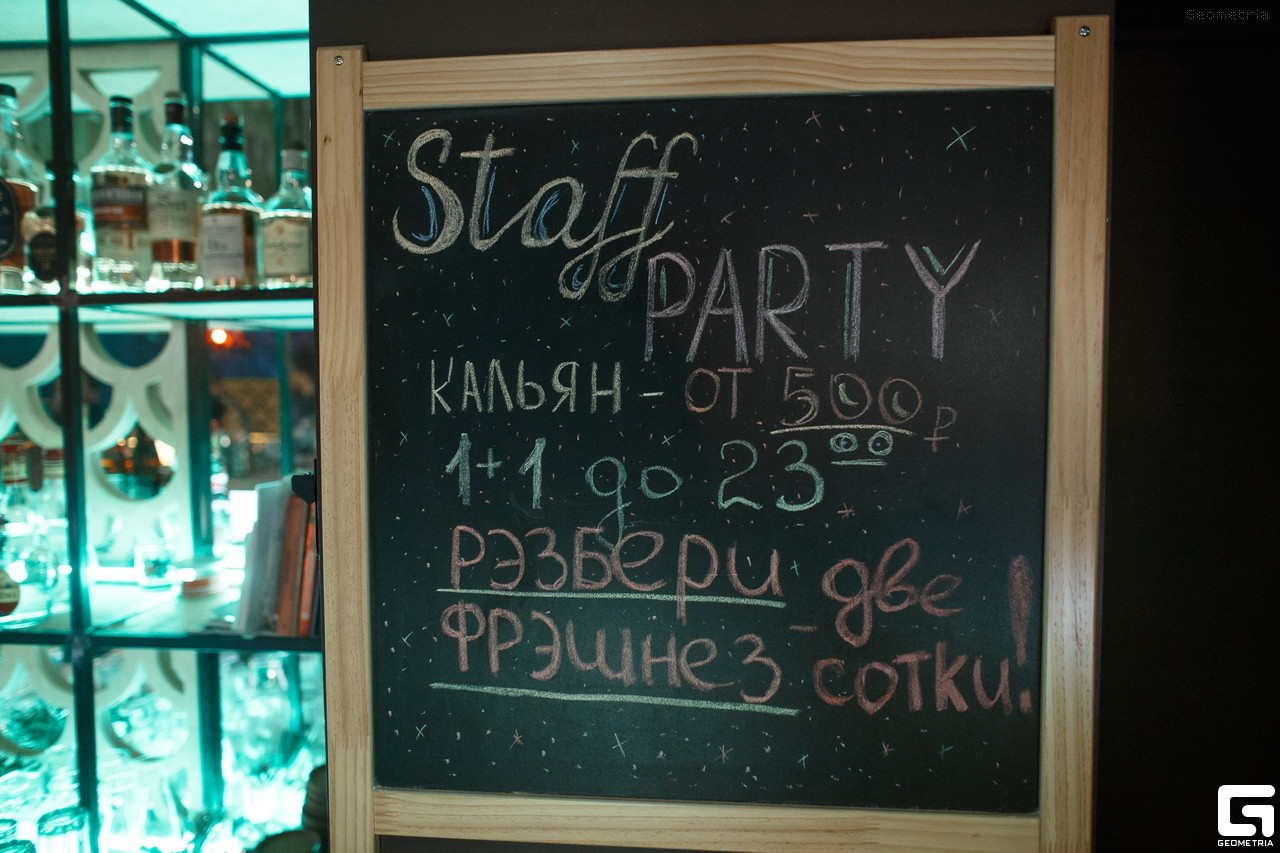 Geometria
Staff
PARTY
КАЛЬЯН - ОТ 500 ₽
1+1 до 23 00
РЭЗБЕРИ - две
ФРЭШНЕЗ сотки!
GEOMETRIA